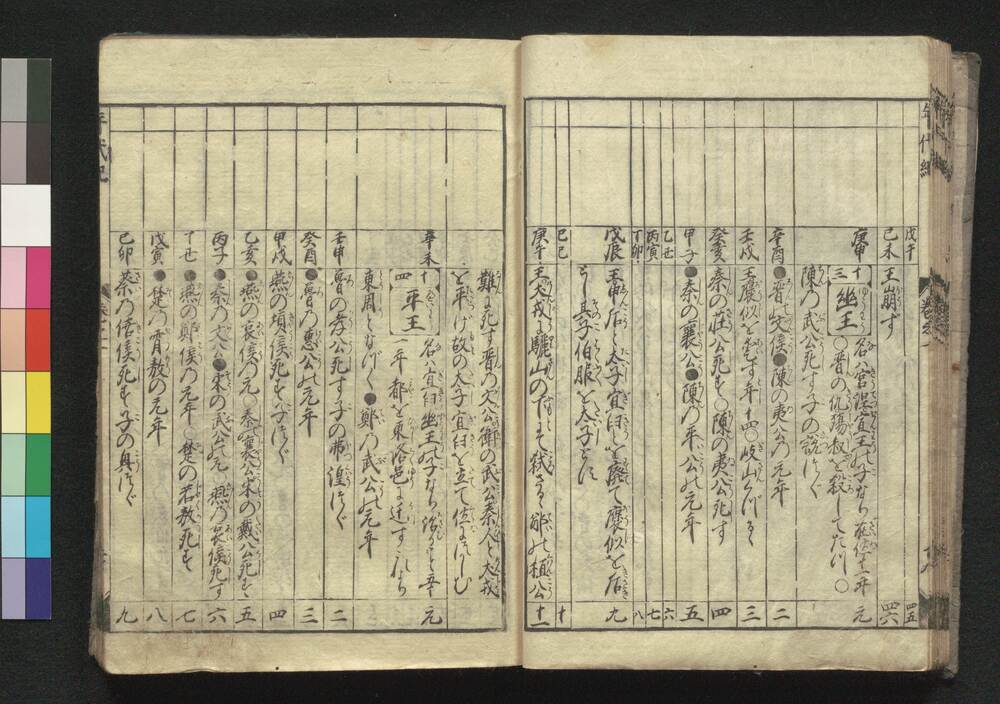 戊午 四五
己未 王崩ず 四六
庚申 十三 幽王 名ハ宮湼宣王の子なり在位十一年 元
〇晋の仇殤叔を殺してたつ〇
陳の武公死す子の説つぐ
辛酉 ●晋の文侯●陳の夷公の元年 二
壬戌 王褒姒を
癸亥 秦の荘公死す〇陳の夷公死す 四
甲子 ●秦の襄公●陳の平公の元年 五
乙丑 六
丙寅 七
丁卯 八
戊辰 王申后と太子宜臼を廃て褒姒を后 九
とし其子伯服を太子とす
己巳 十
庚午 王犬戎に驪山の下にて弑さる鄭の桓公 十一
難に死す晋の文公衛の武公秦人と犬戎
を平げ故の太子宜臼を立て位につかしむ
辛未 十四 平王 名ハ宜臼幽王の子なり 元
一年都を東洛邑に迁す これを
東周となづく●鄭の武公の元年
壬申 魯の孝公死す子の弗湟つぐ 二
癸酉 ●魯の恵公の元年 三
甲戌 燕の頃侯死す子つぐ 四
乙亥 ●燕の哀侯の元 秦襄公宋の戴公死す 五
丙子 ●秦の文公●宋の武公の元 燕の哀侯死す 六
丁丑 ●燕の鄭侯の元年〇楚の若敖死す 七
戊寅 ●楚の霄敖の元年 八
己卯 蔡の僖侯死す子の興つぐ 九